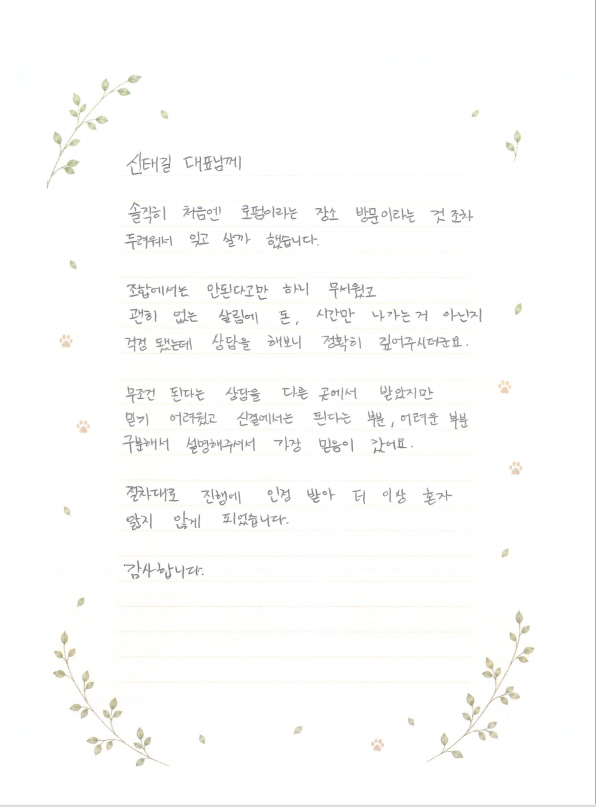 신태길 대표님께
솔직히 처음엔 로펌이라는 장소 방문이라는 것 조차
두려워서 잊고 살까 했습니다.
조합에서는 안된다고만 하니 무서웠고
괜히 없는 살림에 돈, 시간만 나가는거 아닌지
걱정 됐는데 상담을 해보니 정확히 짚어주시더군요.
무조건 된다는 상담을 다른 곳에서 받았지만
믿기 어려웠고 신결에서는 된다는 부분, 어려운 부분
구분해서 설명해주셔서 가장 믿음이 갔어요.
절차대로 진행에 인정 받아 더 이상 혼자
앓지 않게 되었습니다.
감사합니다.